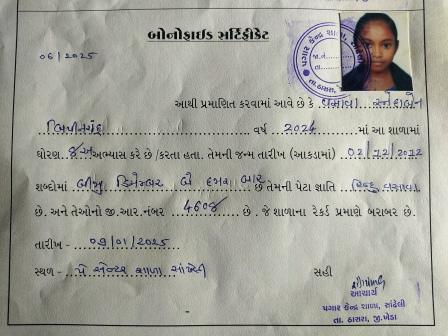 બોનોફાઇડ સર્ટિફીકેટ
06/2025
પગાર કેન્દ્ર શાળા, સાંઢેલી
તા. ઠાસરા, જી. ખેડા
આથી પ્રમાણિત કરવામાં આવે છે કે
વર્ષ 2024 માં આ શાળામાં
ધોરણ અભ્યાસ કરે છે /કરતા હતા. તેમની જન્મ તારીખ (આંકડામાં) 02/12/2012
શબ્દોમાં ડિસેમ્બર બે હજાર બાર છે તેમની પેટા જ્ઞાતિ હિન્દુ
છે. અને તેઓનો જી.આર.નંબર 4608 છે. જે શાળાના રેકર્ડ પ્રમાણે બરાબર છે.
તારીખ - 09/01/2025
સ્થળ - પે સેન્ટર શાળા સાંઢેલી
સહી
આચાર્ય
પગાર કેન્દ્ર શાળા, સાંઢેલી
તા. ઠાસરા, જી.ખેડા